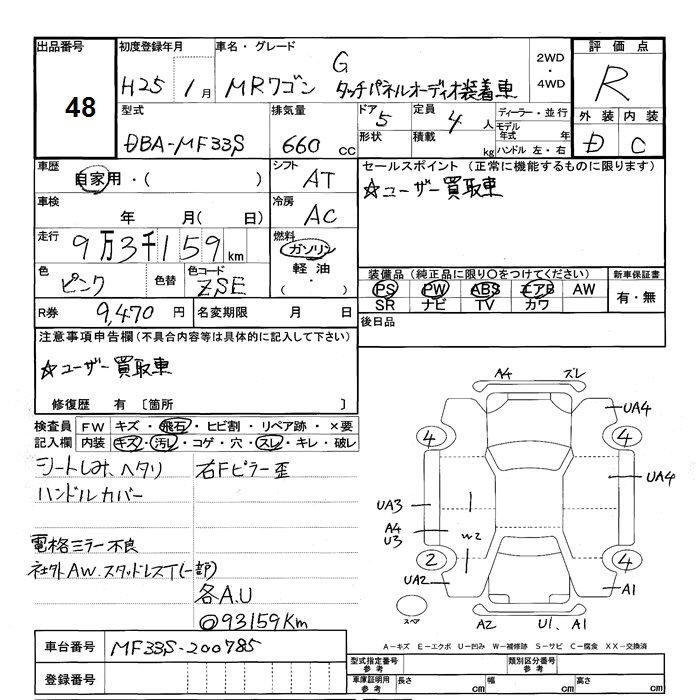 出品番号 初度登録年月 車名・グレード 評価点
48
H25 1月 MRワゴン G タッチパネルオーディオ装着車 2WD ・ 4WD R
型式 排気量 ドア 5 定員 4人 ディーラー・並行 外装 内装
DBA-MF33S 660cc 形状 積載 kg モデル年式 年 D C
ハンドル 左・右
車歴 シフト セールスポイント (正常に機能するものに限ります)
自家用・( ) AT ☆ユーザー買取車
車検 冷房
年 月( 日) AC
走行 燃料
9万3千159km ガソリン
軽油
色 色替 色コード ・( )
ピンク ZSE
装備品 (純正品に限り○をつけてください) 新車保証書
PS PW ABS エアB AW 有・無
SR ナビ TV カワ
R券 9,470円 名変期限 月 日
後日品
注意事項申告欄(不具合内容等は具体的に記入して下さい)
☆ユーザー買取車
修復歴 有 〔箇所 〕
検査員 FW キズ・飛石・ヒビ割・リペア跡・×要
記入欄 内装 キズ・汚レ・コゲ・穴・スレ・キレ・破レ
シートしみ、ヘタリ 右Fピラー歪
ハンドルカバー
電格ミラー不良
社外AW.スタッドレスT(一部)
各A.U
@93159Km
A4 スレ
UA4
4 4
UA4
UA3
A4
U3 W2
2 4
UA2 A1
スペア A2 U1、A1
A-キズ E-エクボ U-凹み W-補修跡 S-サビ C-腐食 XX-交換済
車台番号 MF33S-200785
登録番号
型式指定番号 参考 類別区分番号 参考
車庫証明用 参考 長さ cm 幅 cm 高さ cm